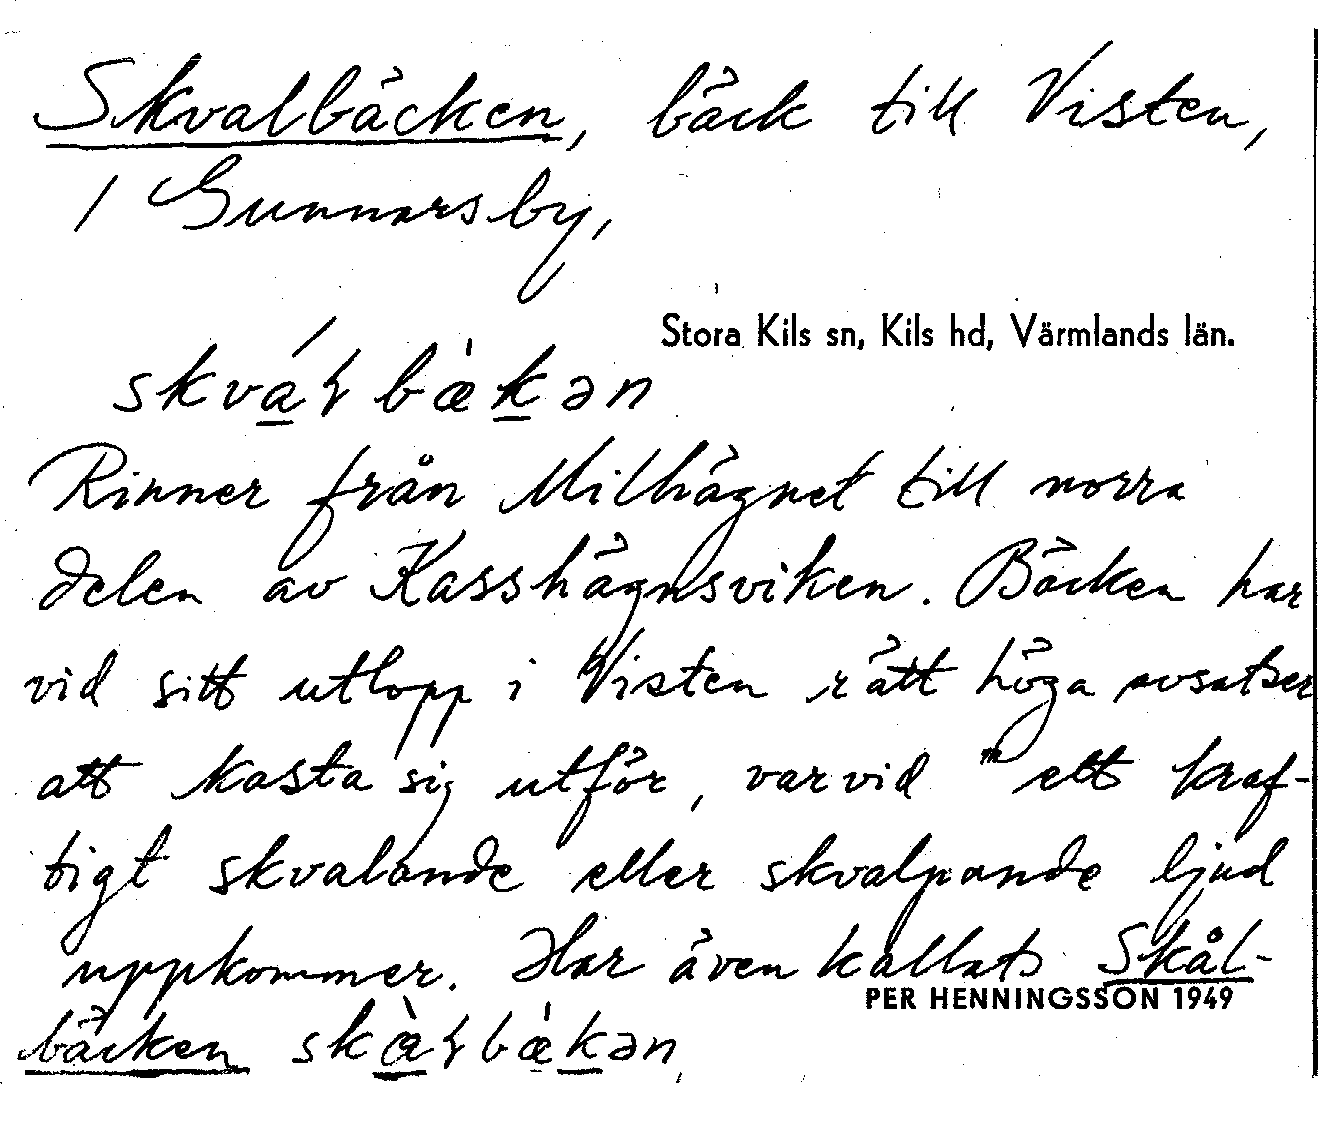 Skvalbäcken, bäck till Visten,
/ Gunnarsby,
Stora Kils sn, Kils hd, Värmlands län.
skváɽbækən
Rinner från Milhägnet till norra
delen av Kasshägnsviken. Bäcken har
vid sitt utlopp i Visten rätt höga avsatser
att kasta sig utför, varvid "ett kraf-
tigt skvalande eller skvalpande ljud
uppkommer. Har även kallats Skål-
PER HENNINGSSON 1949
bäcken skàɽbækən